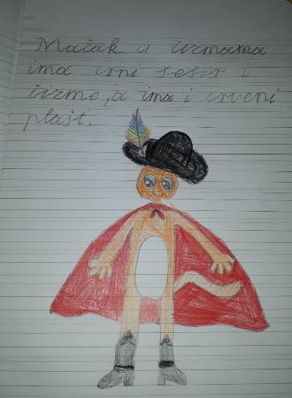 Mačak u čizmama
ima crni šešir i
čizme, a ima i crveni
plašt.